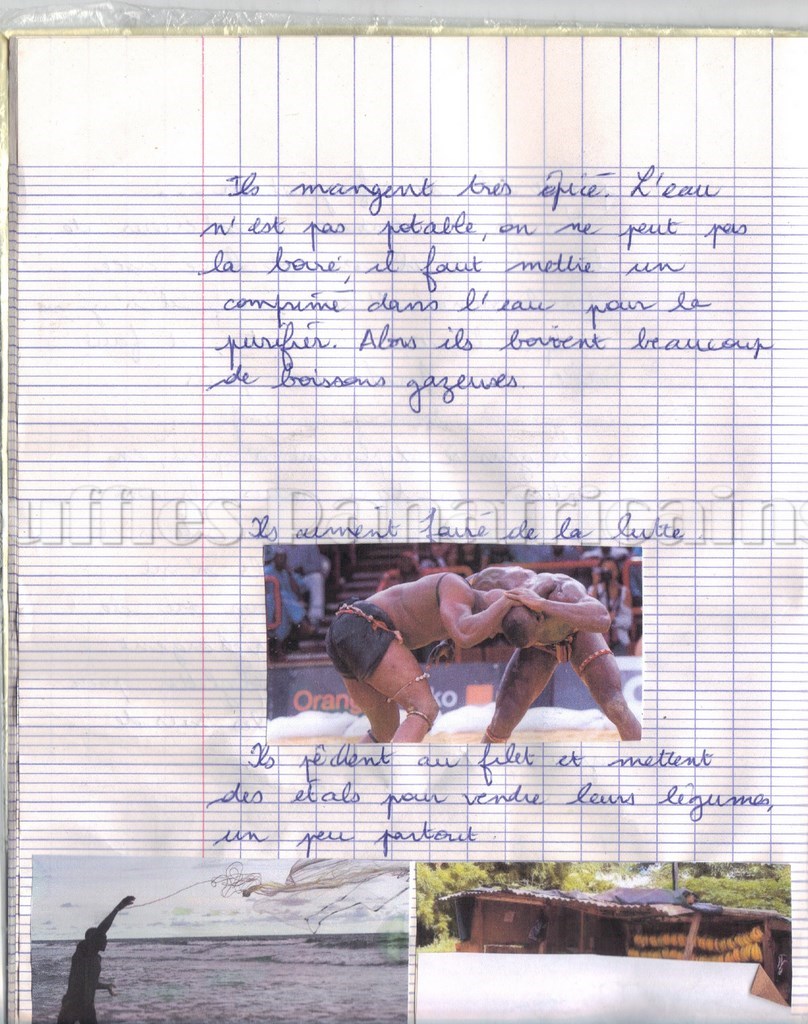 Ils mangent très épicé. L'eau
n'est pas potable, on ne peut pas
la boire, il faut mettre un
comprimé dans l'eau pour la
purifier. Alors ils boivent beaucoup
de boissons gazeuses.
uffles Panafricain
Ils aiment faire de la lutte
Orang ko
Ils pêchent au filet et mettent
des étals pour vendre leurs légumes,
un peu partout.